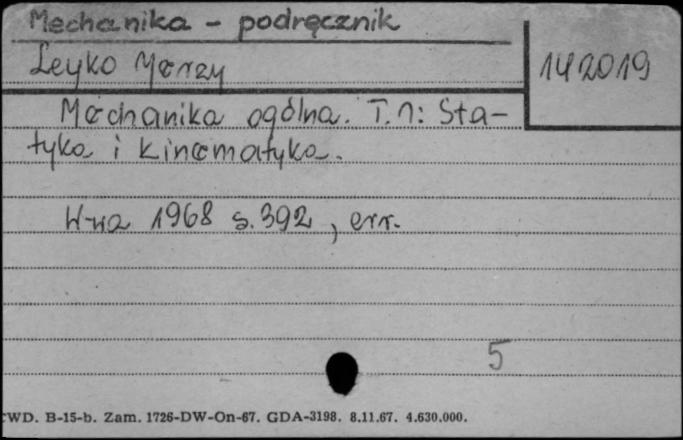 Mechanika - podręcznik
Leyko Jerzy
142019
Mechanika ogólna. T.1: Sta-
tyka i kinematyka.
W-wa 1968 s. 392, err.
5
CWD. B-15-b. Zam. 1726-DW-On-67. GDA-3198. 8.11.67. 4.630.000.